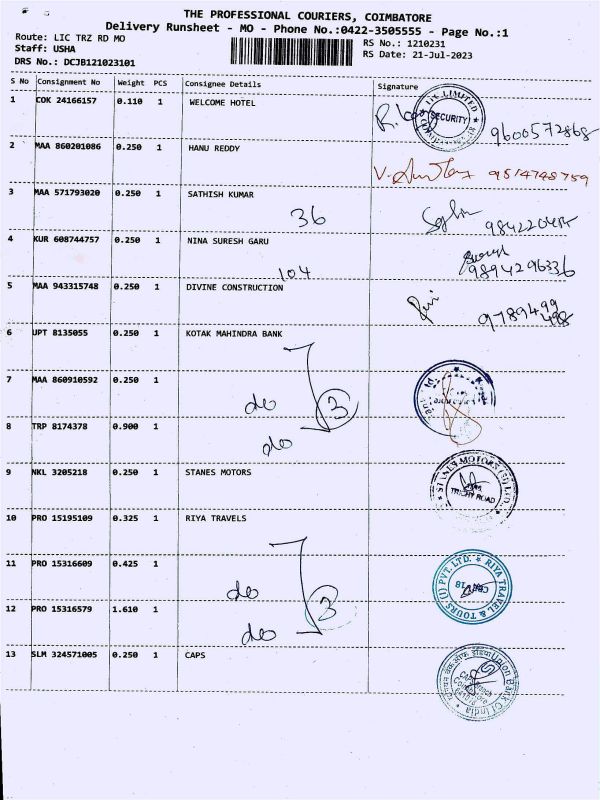 THE PROFESSIONAL COURIERS, COIMBATORE
Delivery Runsheet - MO - Phone No.:0422-3505555 - Page No.:1
Route: LIC TRZ RD MO
RS No.: 1210231
Staff: USHA
RS Date: 21-Jul-2023
DRS No.: DCJB121023101
S No Consignment No Weight PCS Consignee Details Signature
1 COK 24166157 0.110 1 WELCOME HOTEL
LIMITED
SECURITY
9600572868
2 MAA 860201086 0.250 1 HANU REDDY
9514748759
3 MAA 571793020 0.250 1 SATHISH KUMAR
36
4 KUR 608744757 0.250 1 NINA SURESH GARU
104 9894296336
5 MAA 943315748 0.250 1 DIVINE CONSTRUCTION
6 UPT 8135055 0.250 1 KOTAK MAHINDRA BANK
7 MAA 860910592 0.250 1
do 3
8 TRP 8174378 0.900 1
do
9 NKL 3205218 0.250 1 STANES MOTORS
STANES MOTORS (SI) LTD.
TRICHY ROAD
10 PRO 15195109 0.325 1 RIYA TRAVELS
11 PRO 15316609 0.425 1
do 3
RIYA TRAVEL & TOURS (I) PVT. LTD.
CBE-18
12 PRO 15316579 1.610 1
do
13 SLM 324571005 0.250 1 CAPS
Union Bank Of India